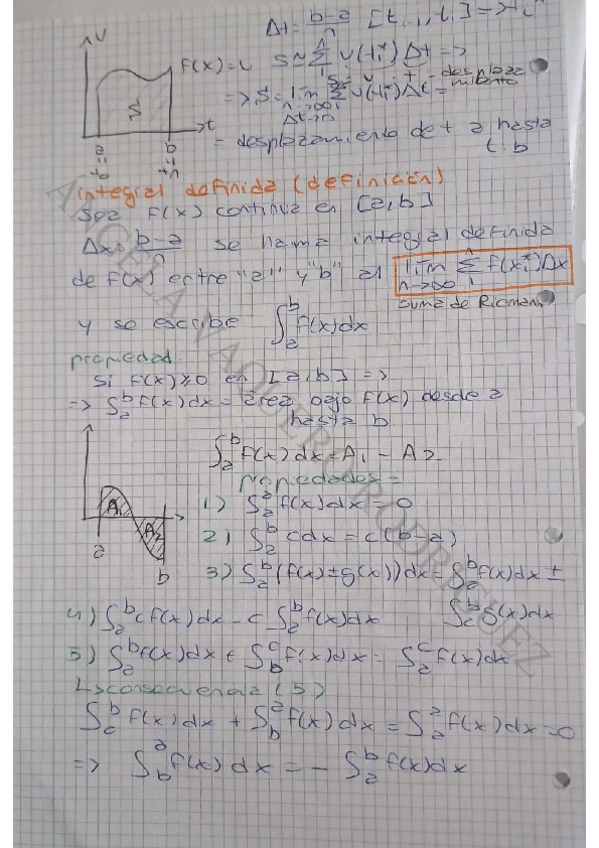 Δt = b-a/n [ti-1, ti] => ti*
v
f(x)=v
S ≃ Σ v(ti*) Δt =>
S
=> S = lim n->∞ Σ v(ti*) Δt =
Δt->0
desplazamiento
t
= desplazamiento de t a hasta
t: b
a
b
integral definida (definición)
Sea f(x) continua en [a,b]
Δx = b-a/n se llama integral definida
de f(x) entre "a" y "b" al lim n->∞ Σ f(xi*)Δx
Suma de Riemann
y se escribe ∫a^b f(x)dx
propiedad
Si f(x)≥0 en [a,b] =>
=> ∫a^b f(x)dx = área bajo f(x) desde a
hasta b
∫a^b f(x)dx = A1 - A2
propiedades =
A1
A2
a
b
1) ∫a^a f(x)dx = 0
2) ∫a^b cdx = c(b-a)
3) ∫a^b (f(x)±g(x))dx = ∫a^b f(x)dx ±
∫a^b g(x)dx
4) ∫a^b cf(x)dx = c ∫a^b f(x)dx
5) ∫a^b f(x)dx + ∫b^c f(x)dx = ∫a^c f(x)dx
L>consecuencia (5)
∫a^b f(x)dx + ∫b^a f(x)dx = ∫a^a f(x)dx = 0
=> ∫b^a f(x)dx = - ∫a^b f(x)dx
ANGELA VAQUERO RODRIGUEZ